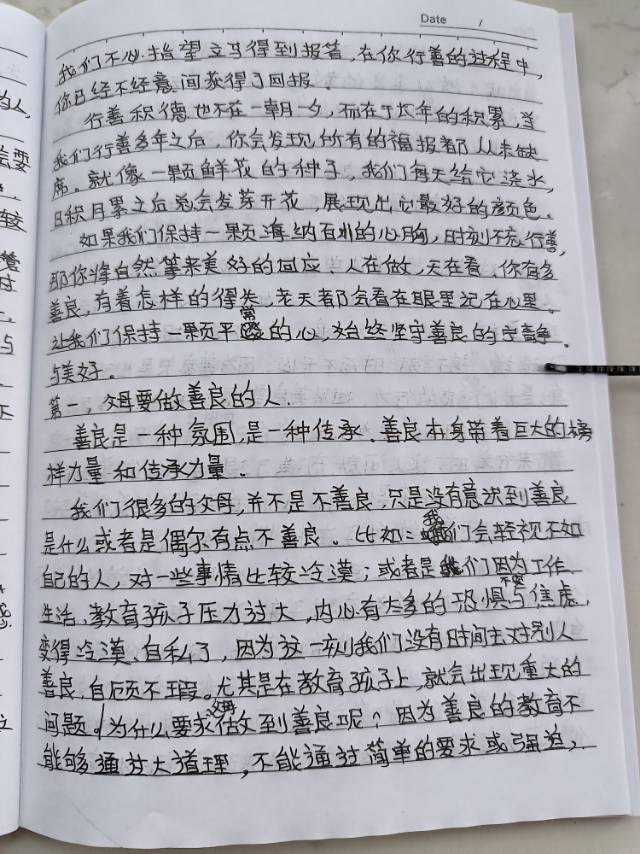 Date /
我们不必指望立马得到报答,在你行善的过程中,
你已经不经意间获得了回报。
行善积德也不在一朝一夕,而在于长年的积累,当
我们行善多年之后,你会发现所有的福报都从未缺
席。就像一颗鲜花的种子,我们每天给它浇水,
日积月累之后总会发芽开花,展现出它最好的颜色。
如果我们保持一颗海纳百川的心胸,时刻不忘行善,
那你将自然等来美好的回应。人在做,天在看,你有多
善良,有着怎样的得失,老天都会看在眼里记在心里。
让我们保持一颗平常的心,始终坚守善良的宁静。
与美好。
第一,父母要做善良的人.
善良是一种氛围,是一种传承.善良本身带着巨大的榜
样力量和传承力量.
我们很多的父母,并不是不善良,只是没有意识到善良
是什么或者是偶尔有点不善良。比如:我们会轻视不如
自己的人,对一些事情比较冷漠;或者是我们因为工作、
生活、教育孩子压力过大,内心有太多的恐惧不安与焦虑,
变得冷漠、自私了,因为这一刻我们没有时间去对别人
善良,自顾不瑕。尤其是在教育孩子上,就会出现重大的
问题。为什么要求父母做到善良呢?因为善良的教育不
能够通过大道理,不能通过简单的要求或强迫,
的人,
会要
较
与